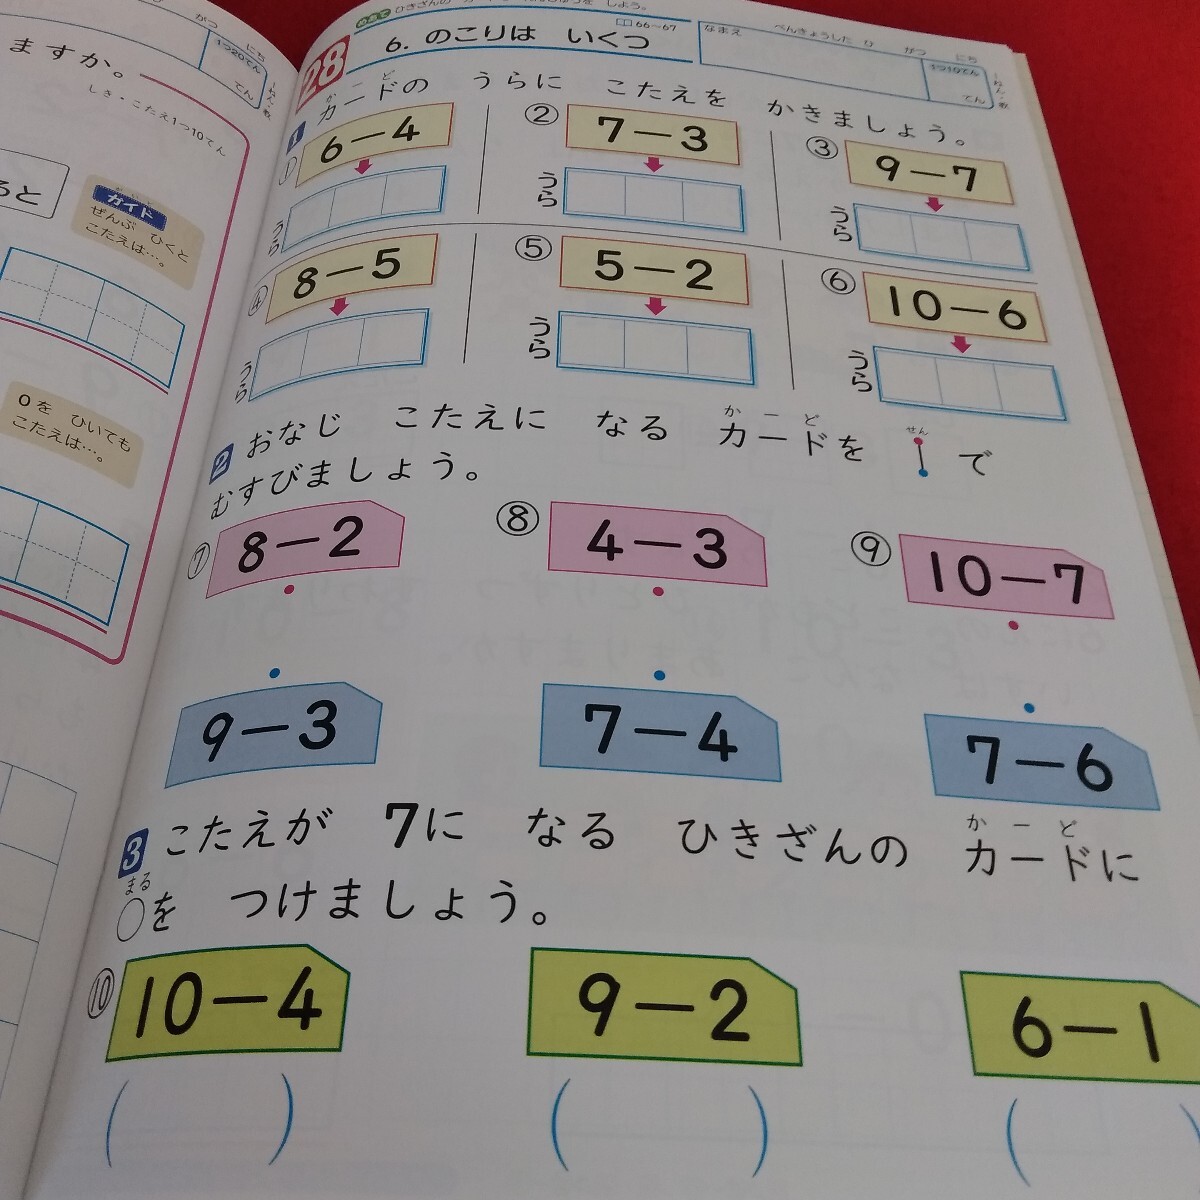 がつ にち
1つ20てん
てん
ますか。
しき・こたえ1つ10てん
ると
ガイド
ぜんぶ ひくと
こたえは…。
0を ひいても
こたえは…。
28
めあて
66〜67
6. のこりは いくつ
なまえ
べんきょうした ひ がつ にち
1つ10てん
てん
1 カードの うらに こたえを かきましょう。
かーど
① 6−4
うら
② 7−3
うら
③ 9−7
うら
④ 8−5
うら
⑤ 5−2
うら
⑥ 10−6
うら
かーど
せん
2 おなじ こたえに なる カードを で
むすびましょう。
⑦ 8−2
⑧ 4−3
⑨ 10−7
9−3
7−4
7−6
かーど
3 こたえが 7に なる ひきざんの カードに
まる
○を つけましょう。
⑩ 10−4
9−2
6−1
( )
( )
(